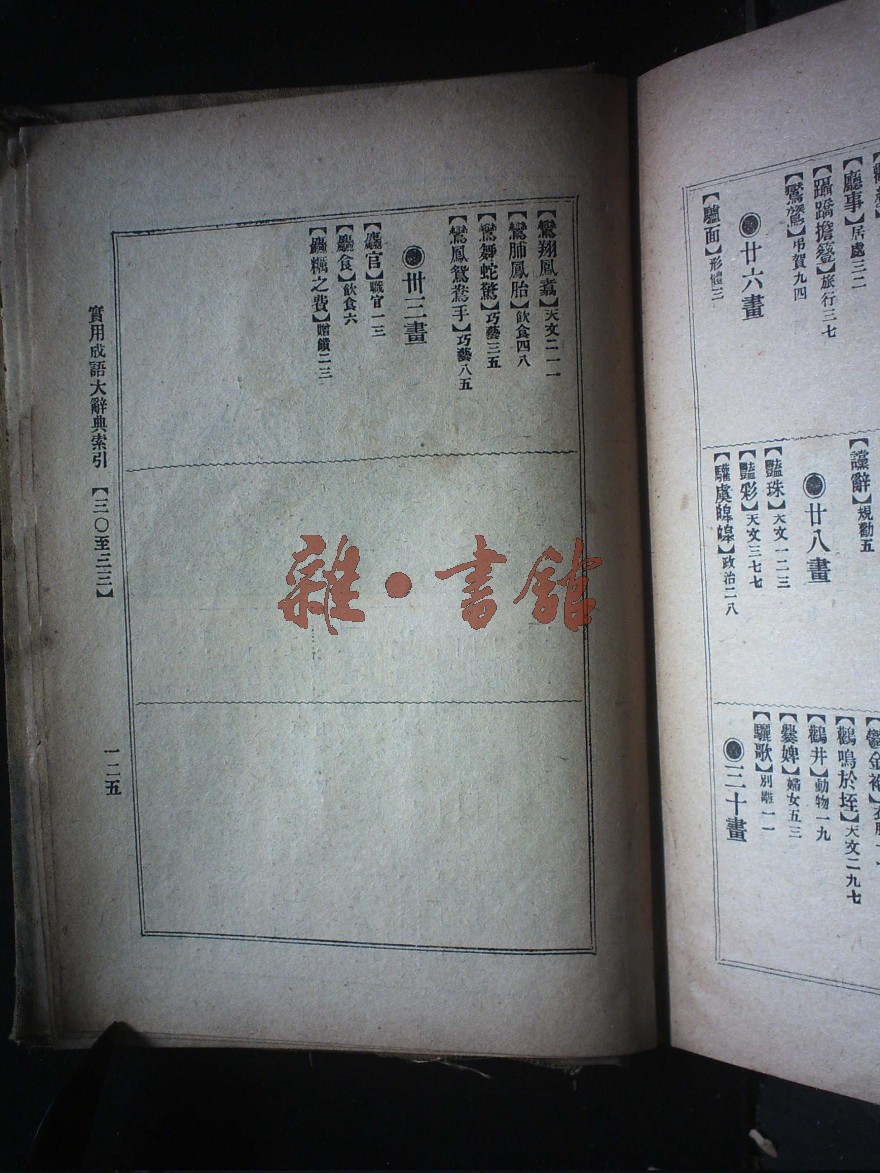 【鸞翔鳳翥】天文二一一
【鸞肺鳳胎】飲食四八
【鸞舞蛇驚】巧藝三五
【鸞鳳鴛鴦手】巧藝八五
卅三畫
官】職官一三
食】飲食六
之費】贈饋二三
實用成語大辭典索引
【三〇至三三】
一二五
廳事】居處三二
【躡蹻擔簦】旅行三七
弔賀九四
廿六畫
面】形體三
讜辭】規勸五
廿八畫
【豔珠】天文一二三
【豔彩】天文三七七
【驩虞皞皞】政治二八
【鸛鳴於垤】天文二九七
【鸛井】動物一九
【爨婢】婦女五三
【驪歌】別離一一
三十畫
雜·書館